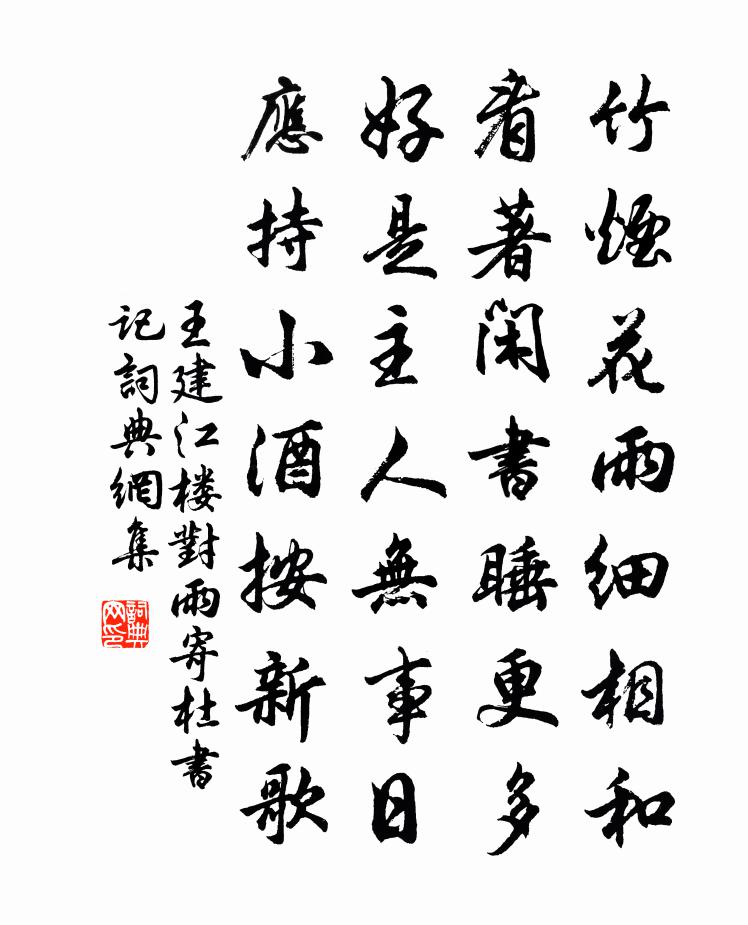 竹煙花雨細相和
看著閑書睡更多
好是主人無事日
應持小酒按新歌
王建江楼對雨寄杜書
記詞典網集
詞典网印